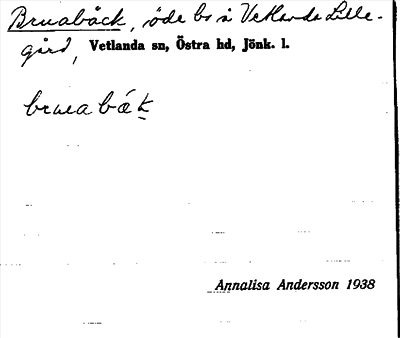 Bruabäck, öde bs å Vetlanda Lille-
gård, Vetlanda sn, Östra hd, Jönk. l.
bruabäk
Annalisa Andersson 1938